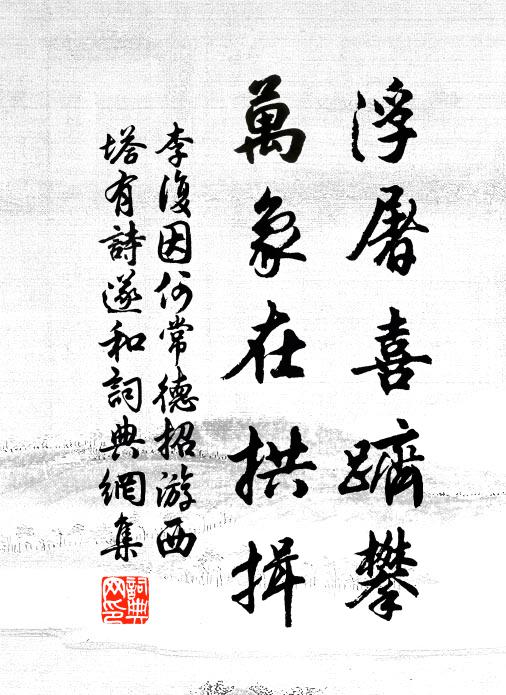 浮屠喜躋攀
萬象在拱揖
李復因何常德招游西
塔有詩遂和詞典網集
詞典网印